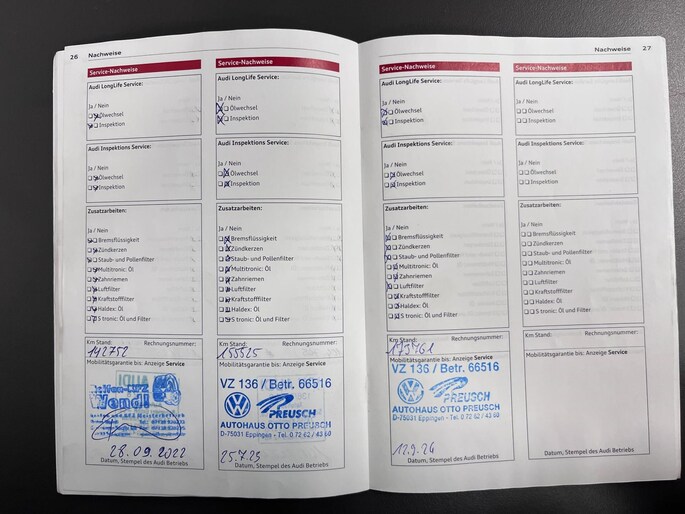 26 Nachweise
Service-Nachweise
Audi LongLife Service:
Ja / Nein
Ölwechsel
Inspektion
Audi Inspektions Service:
Ja / Nein
Ölwechsel
Inspektion
Zusatzarbeiten:
Ja / Nein
Bremsflüssigkeit
Zündkerzen
Staub- und Pollenfilter
Multitronic: Öl
Zahnriemen
Luftfilter
Kraftstofffilter
Haldex: Öl
S tronic: Öl und Filter
Km Stand: Rechnungsnummer:
142752
Mobilitätsgarantie bis: Anzeige Service
Wendl
28.09.2022
Datum, Stempel des Audi Betriebs
Service-Nachweise
Audi LongLife Service:
Ja / Nein
Ölwechsel
Inspektion
Audi Inspektions Service:
Ja / Nein
Ölwechsel
Inspektion
Zusatzarbeiten:
Ja / Nein
Bremsflüssigkeit
Zündkerzen
Staub- und Pollenfilter
Multitronic: Öl
Zahnriemen
Luftfilter
Kraftstofffilter
Haldex: Öl
S tronic: Öl und Filter
Km Stand: Rechnungsnummer:
155525
Mobilitätsgarantie bis: Anzeige Service
VZ 136 / Betr. 66516
PREUSCH
AUTOHAUS OTTO PREUSCH
D-75031 Eppingen - Tel. 0 72 62 / 43 60
25.7.25
Datum, Stempel des Audi Betriebs
Nachweise 27
Service-Nachweise
Audi LongLife Service:
Ja / Nein
Ölwechsel
Inspektion
Audi Inspektions Service:
Ja / Nein
Ölwechsel
Inspektion
Zusatzarbeiten:
Ja / Nein
Bremsflüssigkeit
Zündkerzen
Staub- und Pollenfilter
Multitronic: Öl
Zahnriemen
Luftfilter
Kraftstofffilter
Haldex: Öl
S tronic: Öl und Filter
Km Stand: Rechnungsnummer:
Mobilitätsgarantie bis: Anzeige Service
VZ 136 / Betr. 66516
PREUSCH
AUTOHAUS OTTO PREUSCH
D-75031 Eppingen - Tel. 0 72 62 / 43 60
Datum, Stempel des Audi Betriebs
Service-Nachweise
Audi LongLife Service:
Ja / Nein
Ölwechsel
Inspektion
Audi Inspektions Service:
Ja / Nein
Ölwechsel
Inspektion
Zusatzarbeiten:
Ja / Nein
Bremsflüssigkeit
Zündkerzen
Staub- und Pollenfilter
Multitronic: Öl
Zahnriemen
Luftfilter
Kraftstofffilter
Haldex: Öl
S tronic: Öl und Filter
Km Stand: Rechnungsnummer:
Mobilitätsgarantie bis: Anzeige Service
Datum, Stempel des Audi Betriebs